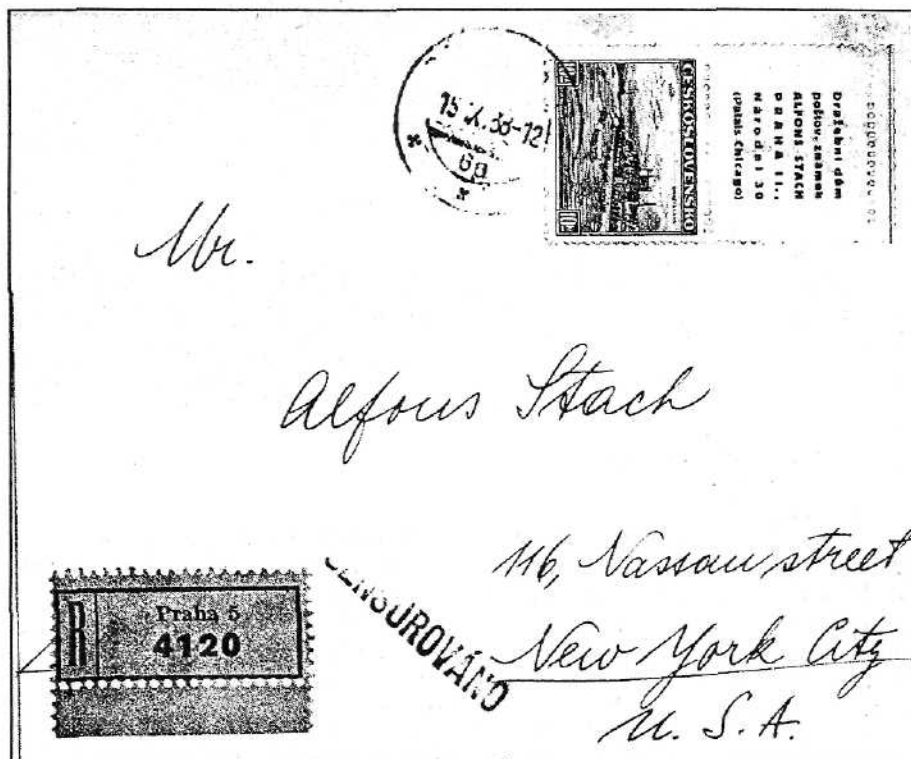 15.X.38-12
6a
ČESKOSLOVENSKO
10
Dražební dům
poštov. známek
ALFONS STACH
PRAHA II.,
Národní 30
(Palais Chicago)
Mr.
Alfons Stach
116, Nassau street
New York City
U. S. A.
R
Praha 5
4120
CENSUROVÁNO